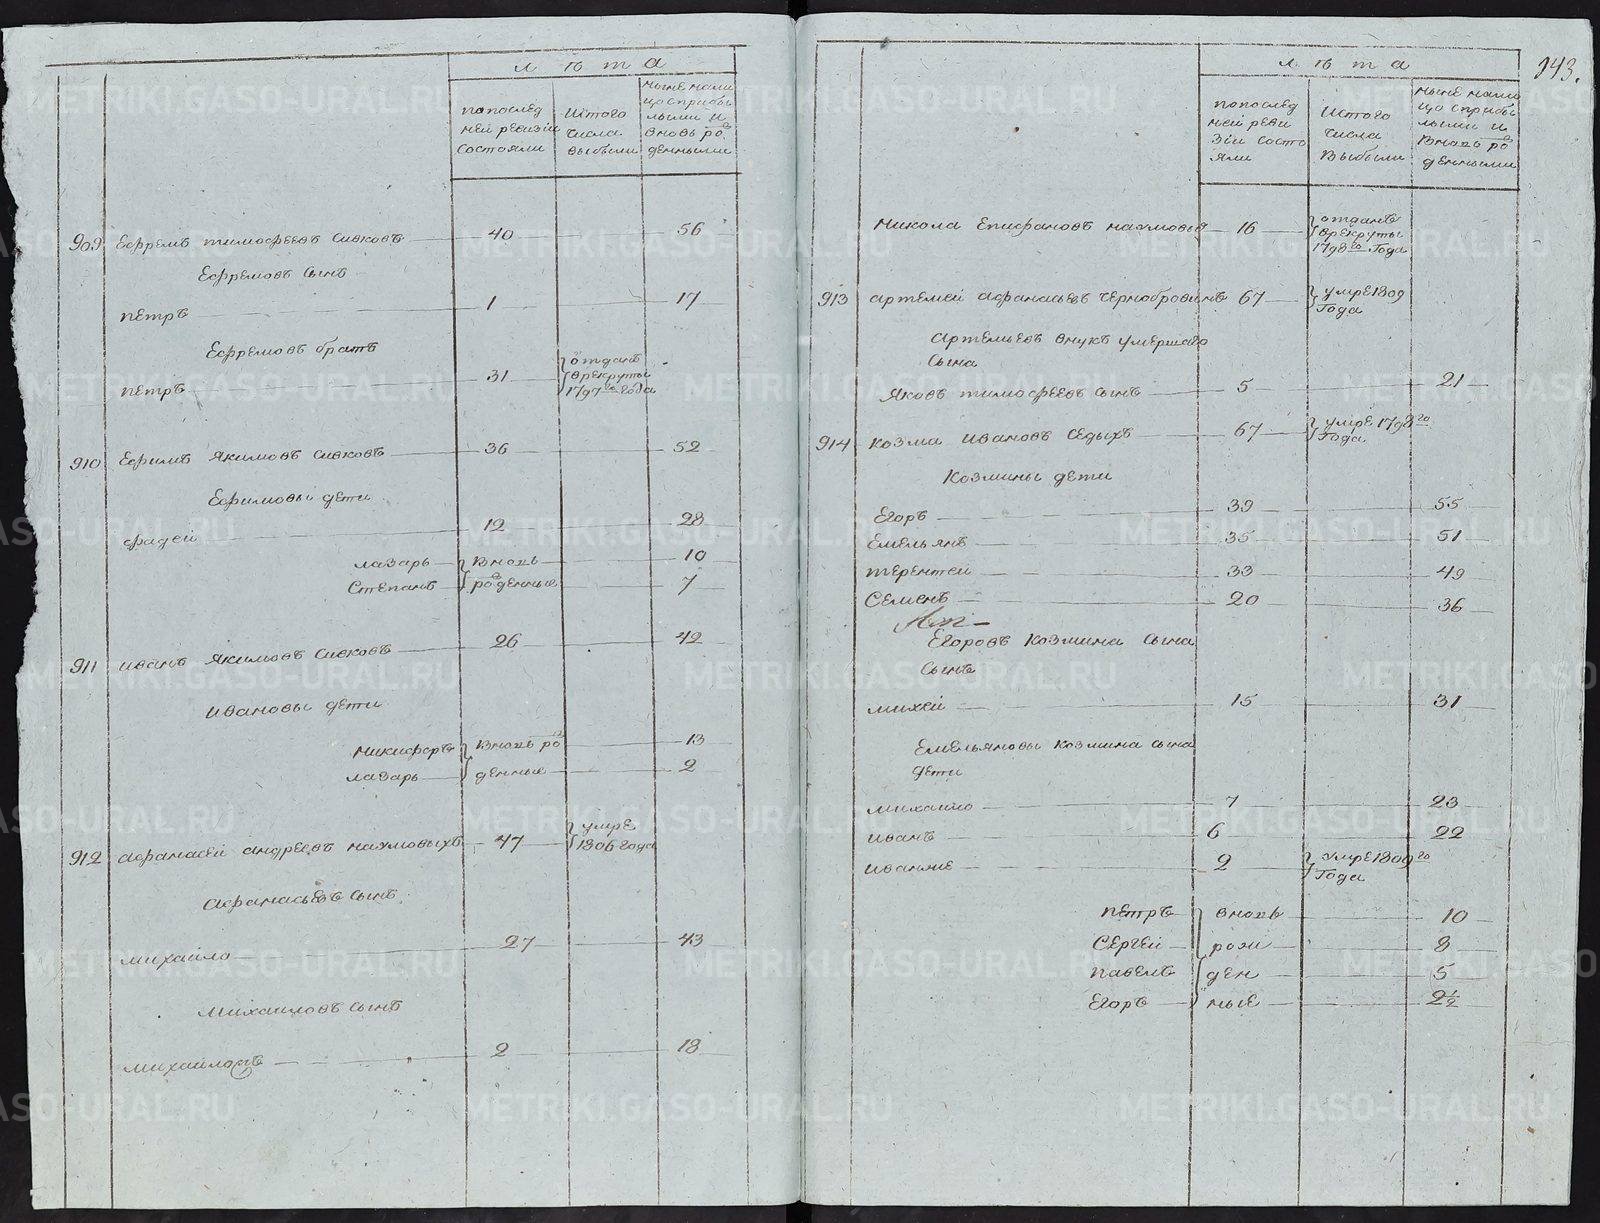 лѣта
попослед
ней ревизіи
состояли
Истого
числа
выбыли
ныне нали
цо сприбы
лыми и
вновь ро
денными
909 Ефремъ тимофеевъ сивковъ 40 56
Ефремовъ сынъ
петръ 1 17
Ефремовъ братъ
петръ 31 отданъ
врекруты
1797го года
910 Ефимъ якимовъ сивковъ 36 52
Ефимовы дети
фадей 12 28
лазарь вновь 10
Степанъ роденные 7
911 иванъ якимовъ сивковъ 26 42
ивановы дети
никифоръ вновь ро 13
лазарь денные 2
912 афанасей андреевъ наумовыхъ 47 умре
1806 года
афанасьевъ сынъ
михайло 27 43
михаиловъ сынъ
михайло 2 18
943.
лѣта
попослед
ней реви
зіи состо
яли
Истого
числа
выбыли
ныне нали
цо сприбы
лыми и
вновь ро
денными
никола Епифановъ наумовъ 16 отданъ
врекруты
1798го года
913 артемей афанасьевъ чернобровинъ 67 умре 1809
Года
артемьевъ внукъ умершаго
сына
яковъ тимофеевъ сынъ 5 21
914 козма ивановъ седыхъ 67 умре 1798го
Года
козмины дети
Егоръ 39 55
Емельянъ 35 51
терентей 33 49
Семенъ 20 36
Егоровъ козмина сына
сынъ
михей 15 31
Емельяновы козмина сына
дети
михайло 7 23
иванъ 6 22
иванже 2 умре 1809го
Года
петръ вновь 10
Сергей рож 8
павелъ ден 5
Егоръ ные 2½
METRIKI.GASO-URAL.RU